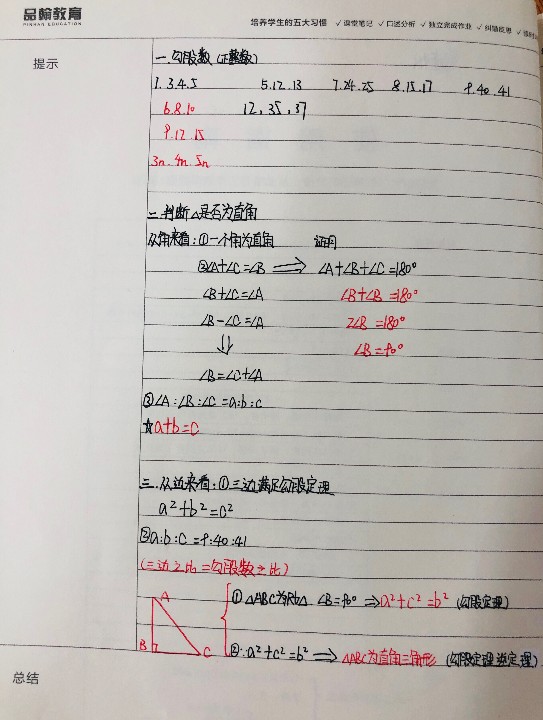 品翰教育
PINHAN EDUCATION
培养学生的五大习惯 ✓课堂笔记 ✓口述分析 ✓独立完成作业 ✓纠错反思
提示
一.勾股数(正整数)
1.3.4.5 5.12.13 7.24.25 8.15.17 9.40.41
6.8.10 12.35.37
9.12.15
3n.4n.5n
二.判断△是否为直角
从角来看:①一个角为直角 证明
②∠A+∠C=∠B ⇒ ∠A+∠B+∠C=180°
∠B+∠C=∠A ∠B+∠B=180°
∠B-∠C=∠A 2∠B=180°
⇓ ∠B=90°
∠B=∠C+∠A
③∠A:∠B:∠C=a:b:c
☆a+b=c
三.从边来看:①三边满足勾股定理
a²+b²=c²
②a:b:c=9:40:41
(三边之比=勾股数之比)
A ①△ABC为Rt△.∠B=90° ⇒a²+c²=b² (勾股定理)
B C ②∵a²+c²=b² ⇒ △ABC为直角三角形 (勾股定理逆定理)
总结